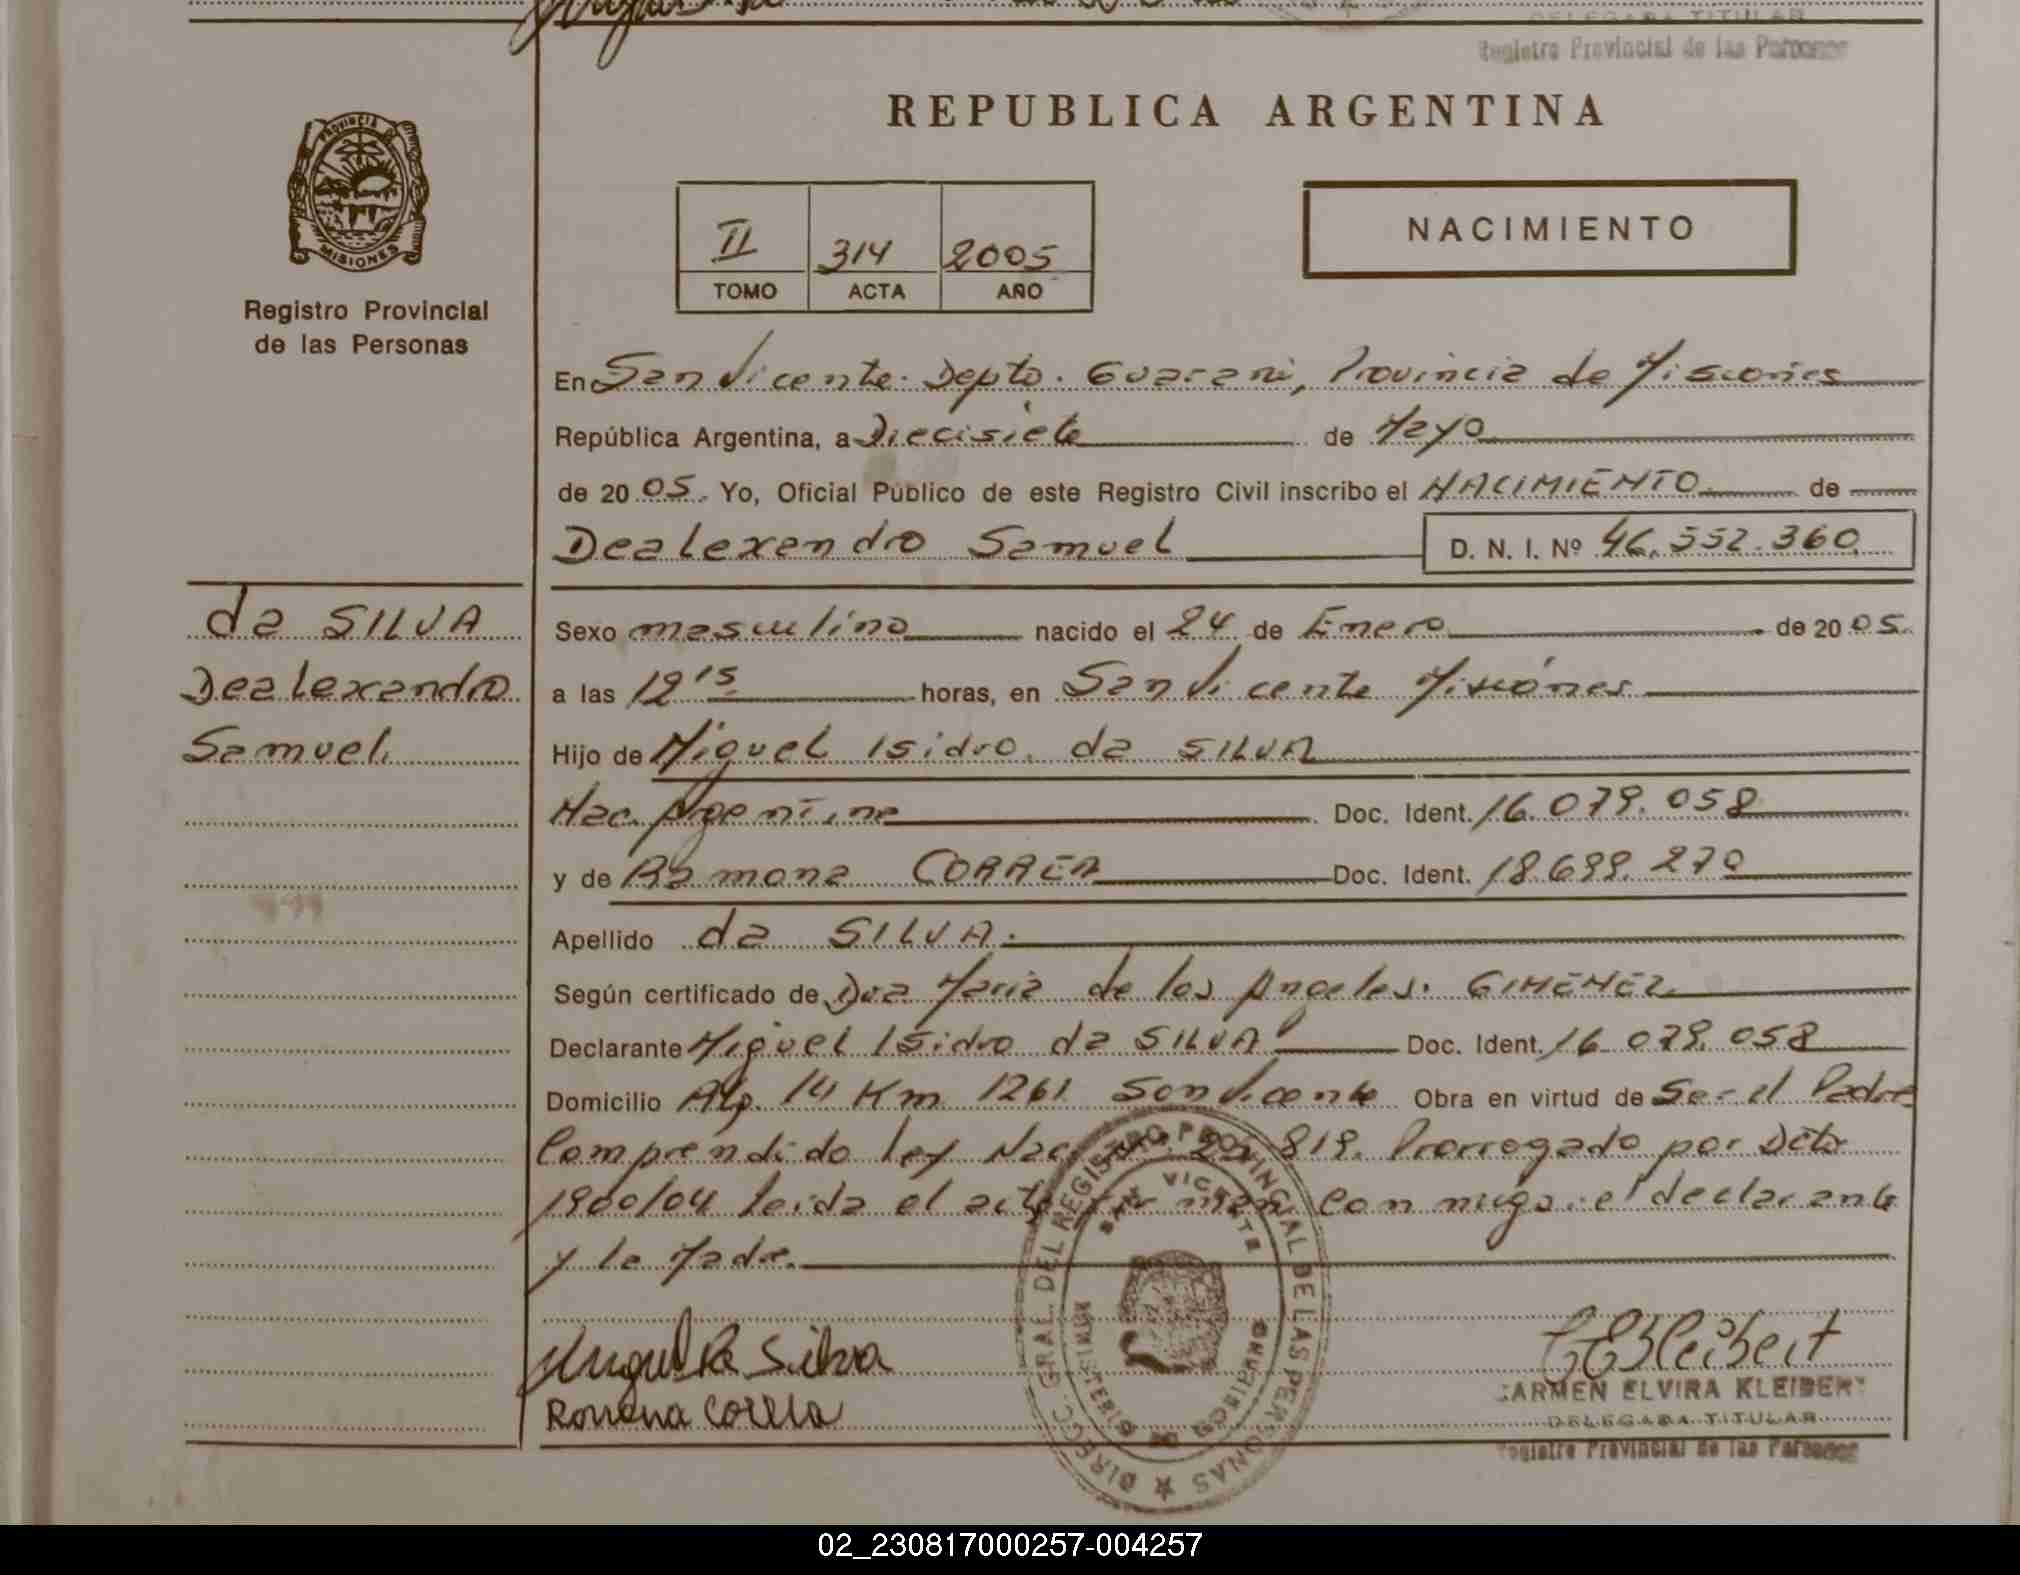 DELEGADA TITULAR
Registro Provincial de las Personas
REPUBLICA ARGENTINA
PROVINCIA DE
MISIONES
Registro Provincial
de las Personas
II 314 2005
TOMO ACTA AÑO
NACIMIENTO
En San Vicente. Depto. Guarani, Provincia de Misiones
República Argentina, a Diecisiete de Mayo
de 2005. Yo, Oficial Público de este Registro Civil inscribo el NACIMIENTO de
Dealexandro Samuel D. N. I. Nº 46.552.360
da SILVA
Dealexandro
Samuel.
Sexo masculino nacido el 24 de Enero de 2005.
a las 12 15 horas, en San Vicente Misiones
Hijo de Miguel Isidro da SILVA
Nac. Argentina Doc. Ident. 16.079.058
y de Ramona CORREA Doc. Ident. 18.699.270
Apellido da SILVA.
Según certificado de Dra Maria de los Angeles. GIMENEZ
Declarante Miguel Isidro da SILVA Doc. Ident. 16.079.058
Domicilio Alp. 14 Km 1261 San Vicente Obra en virtud de Ser el Padre
Comprendido ley Nac. Nº 25.819. Prorrogado por Dcto
1900/04 leida el acta firman conmigo: el declarante
y la Madre.
Miguel Da Silva
Ramona Correa
DIRECC. GRAL. DEL REGISTRO PROVINCIAL DE LAS PERSONAS
SAN VICENTE
MINISTERIO DE GOBIERNO
CEKleibert
CARMEN ELVIRA KLEIBERT
DELEGADA TITULAR
Registro Provincial de las Personas
02_230817000257-004257